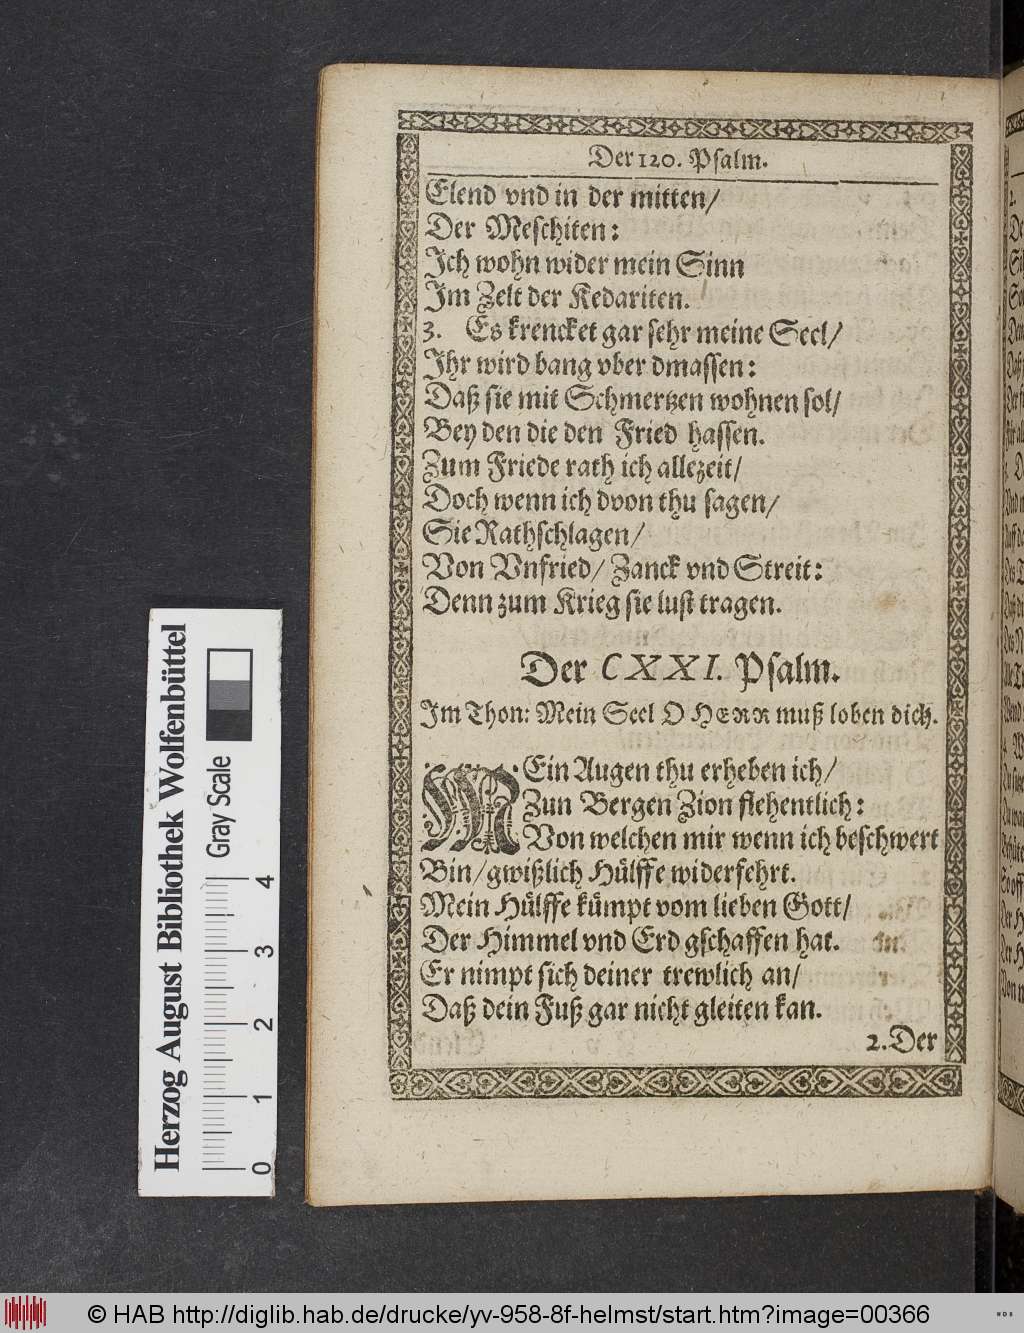 Der 120. Psalm.
Elend vnd in der mitten/
Der Meschiten:
Ich wohn wider mein Sinn
Im Zelt der Kedariten.
3. Es krencket gar sehr meine Seel/
Ihr wird bang vber dmassen:
Daß sie mit Schmertzen wohnen sol/
Bey den die den Fried hassen.
Zum Friede rath ich allezeit/
Doch wenn ich dvon thu sagen/
Sie Rathschlagen/
Von Vnfried/ Zanck vnd Streit:
Denn zum Krieg sie lust tragen.
Der CXXI. Psalm.
Im Thon: Mein Seel O HERR muß loben dich.
MEin Augen thu erheben ich/
Zun Bergen Zion flehentlich:
Von welchen mir wenn ich beschwert
Bin/ gwißlich Hülffe widerfehrt.
Mein Hülffe kümpt vom lieben Gott/
Der Himmel vnd Erd gschaffen hat.
Er nimpt sich deiner trewlich an/
Daß dein Fuß gar nicht gleiten kan.
2. Der
Herzog August Bibliothek Wolfenbüttel
Gray Scale
0 1 2 3 4
© HAB http://diglib.hab.de/drucke/yv-958-8f-helmst/start.htm?image=00366